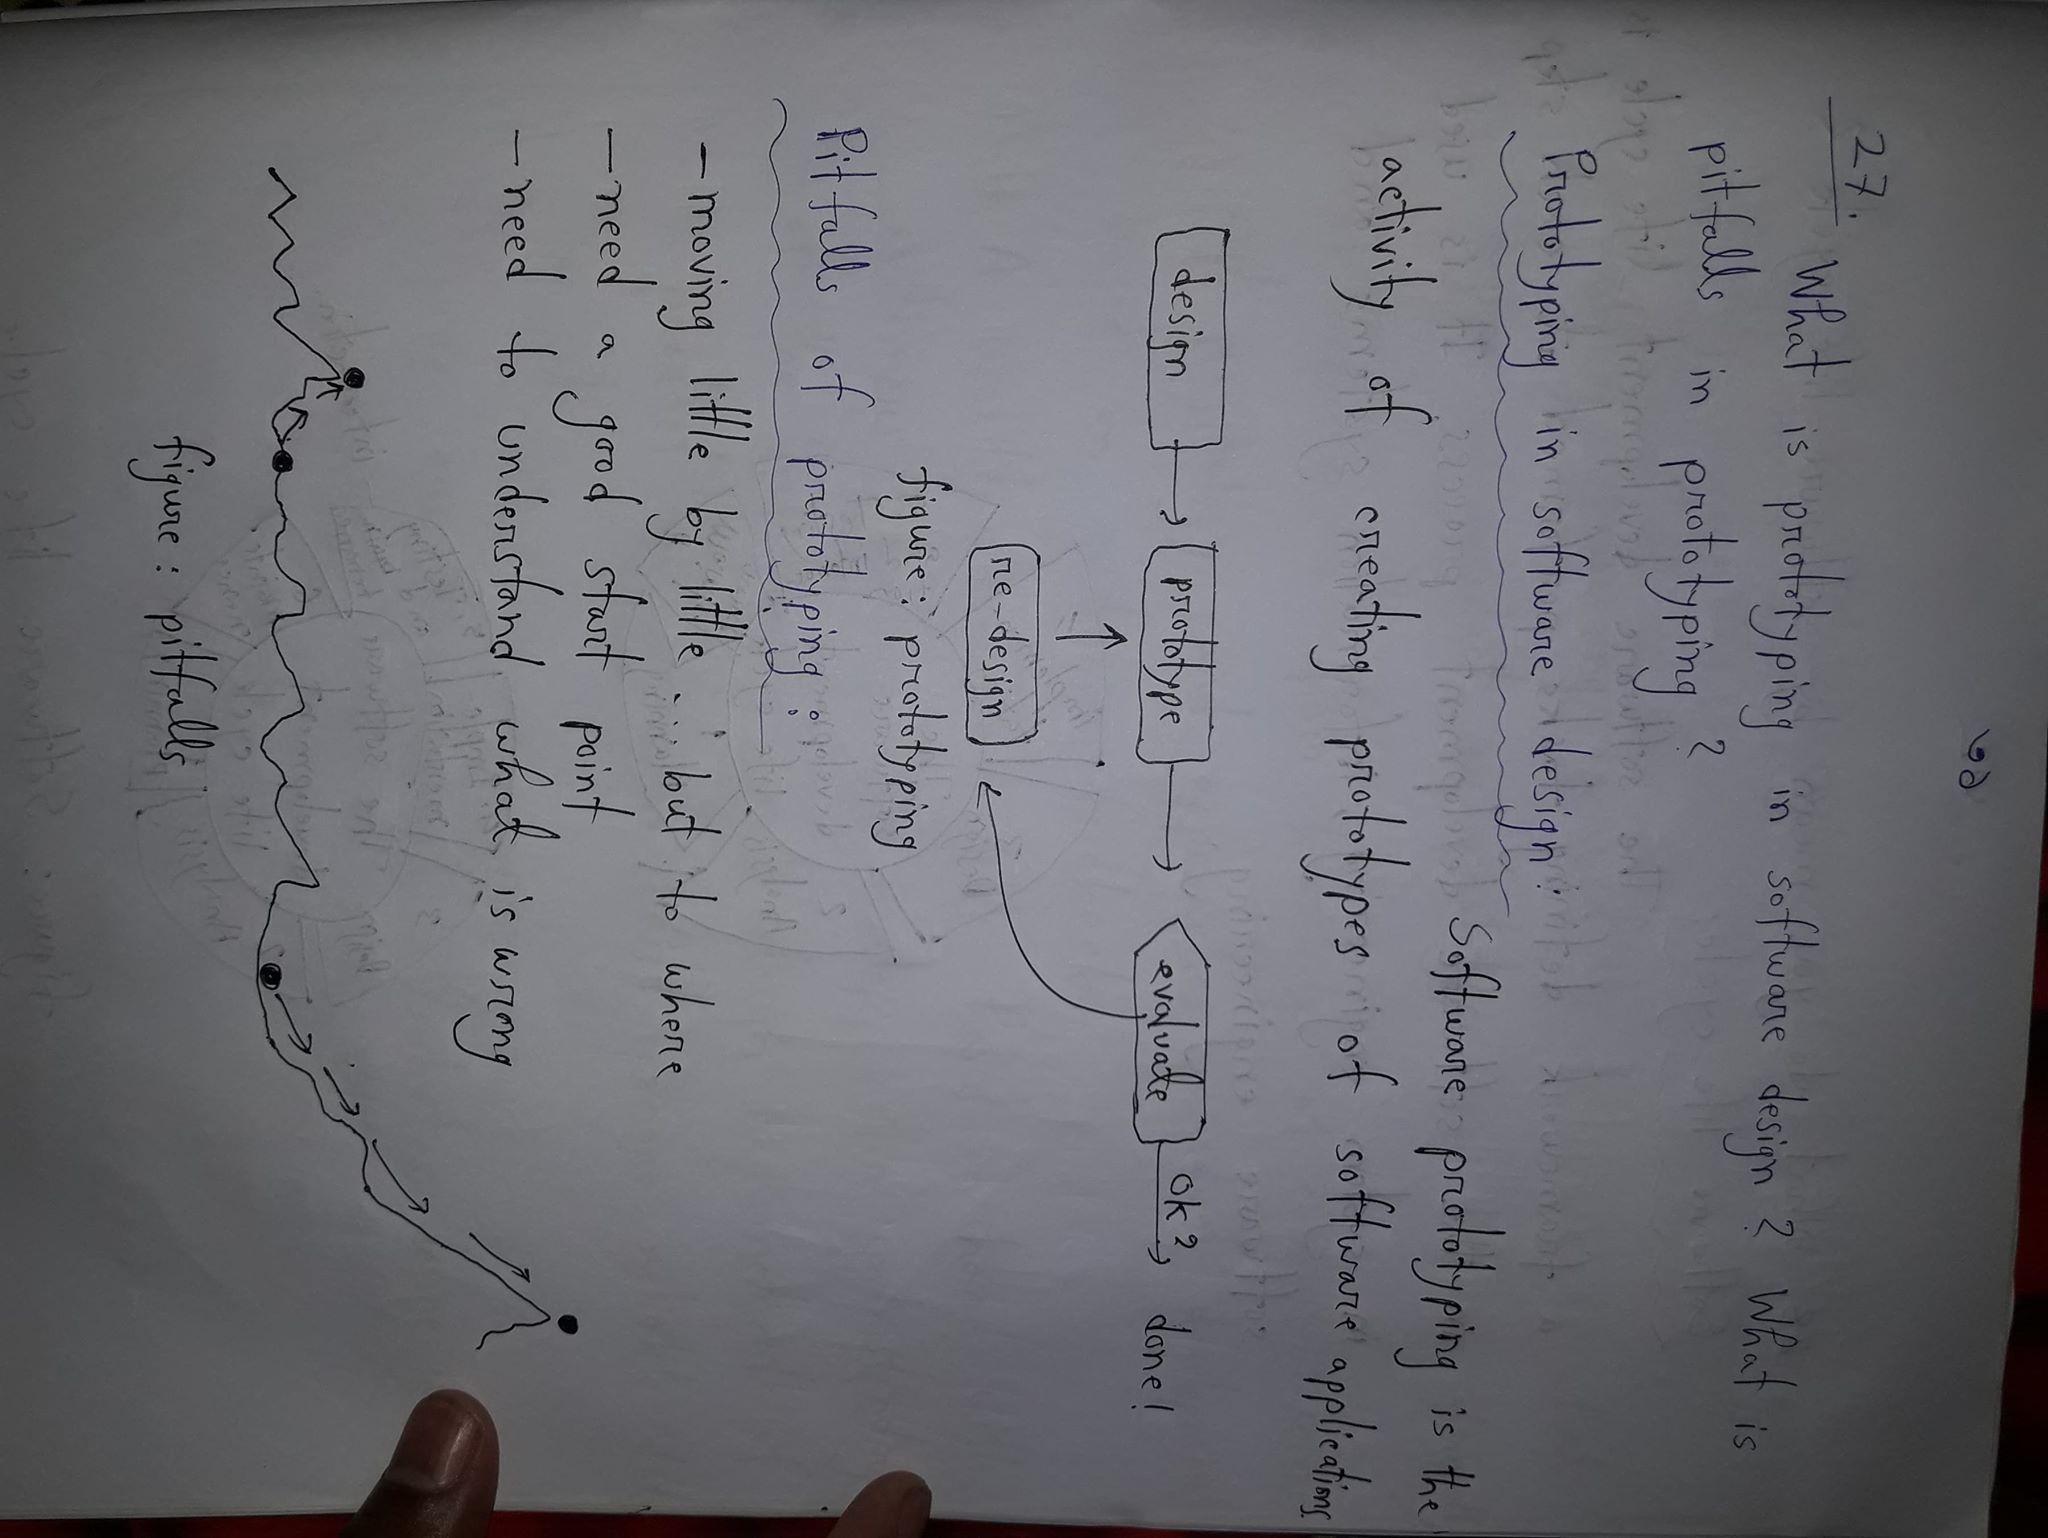 ৩১
27.
What is prototyping in software design? What is
pitfalls in prototyping?
Prototyping in software design:
Software prototyping is the
activity of creating prototypes of software applications.
design
prototype
evaluate
ok?
done!
re-design
figure: prototyping
Pitfalls of prototyping:
- moving little by little ... but to where
- need a good start point
- need to understand what is wrong
figure: pitfalls